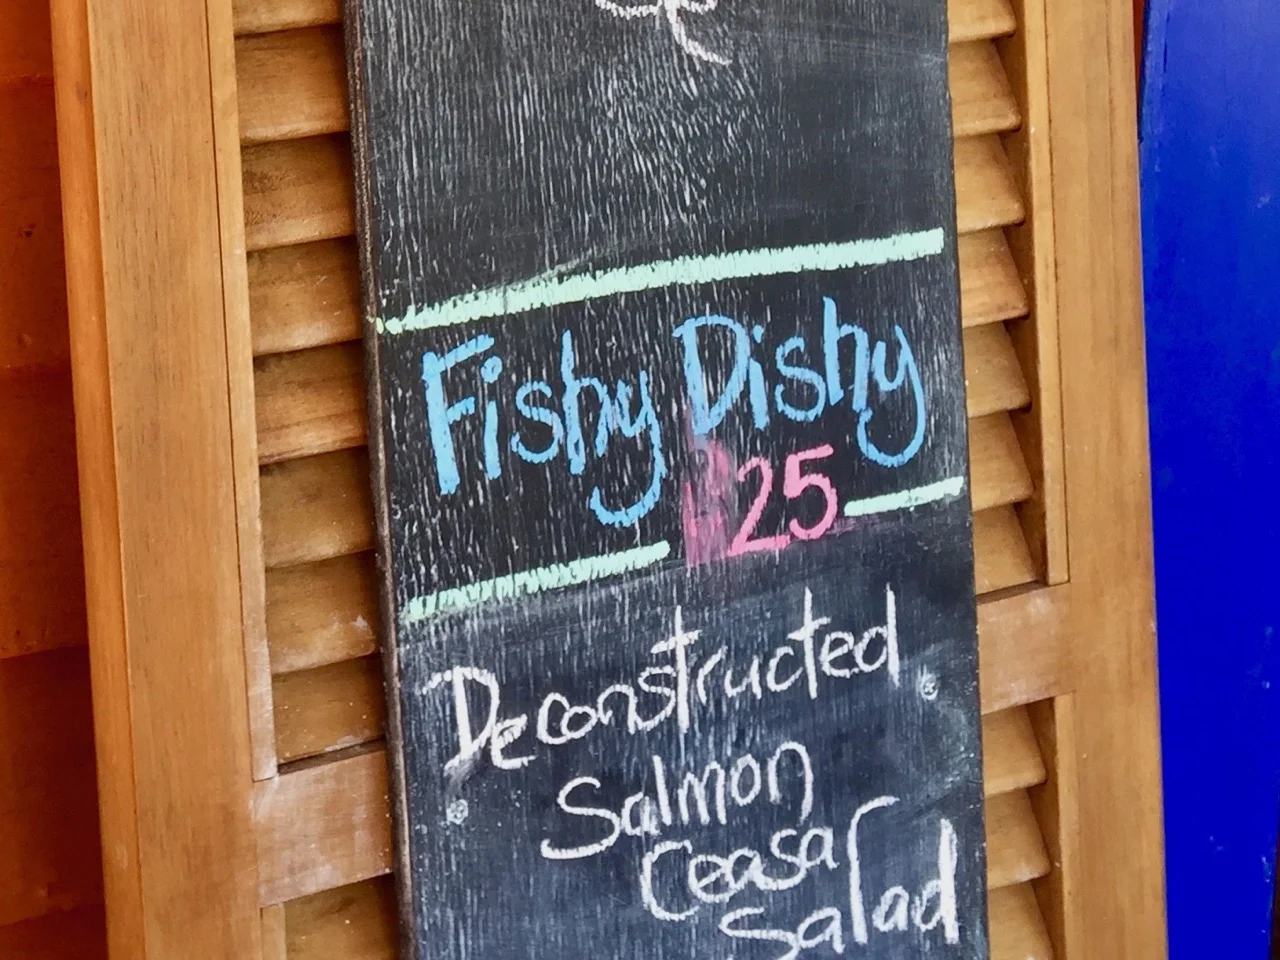 Fishy Dishy
25
Deconstructed
Salmon
Ceasar
Salad